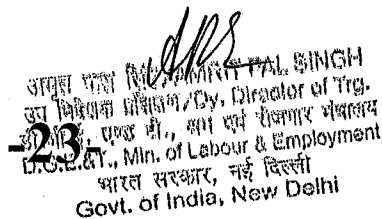 अमृत पाल सिंह/AMRIT PAL SINGH
उप निदेशक प्रशिक्षण/Dy. Director of Trg.
एण्ड टी., श्रम एवं रोजगार मंत्रालय
-23-
D.G.E.&T., Min. of Labour & Employment
भारत सरकार, नई दिल्ली
Govt. of India, New Delhi